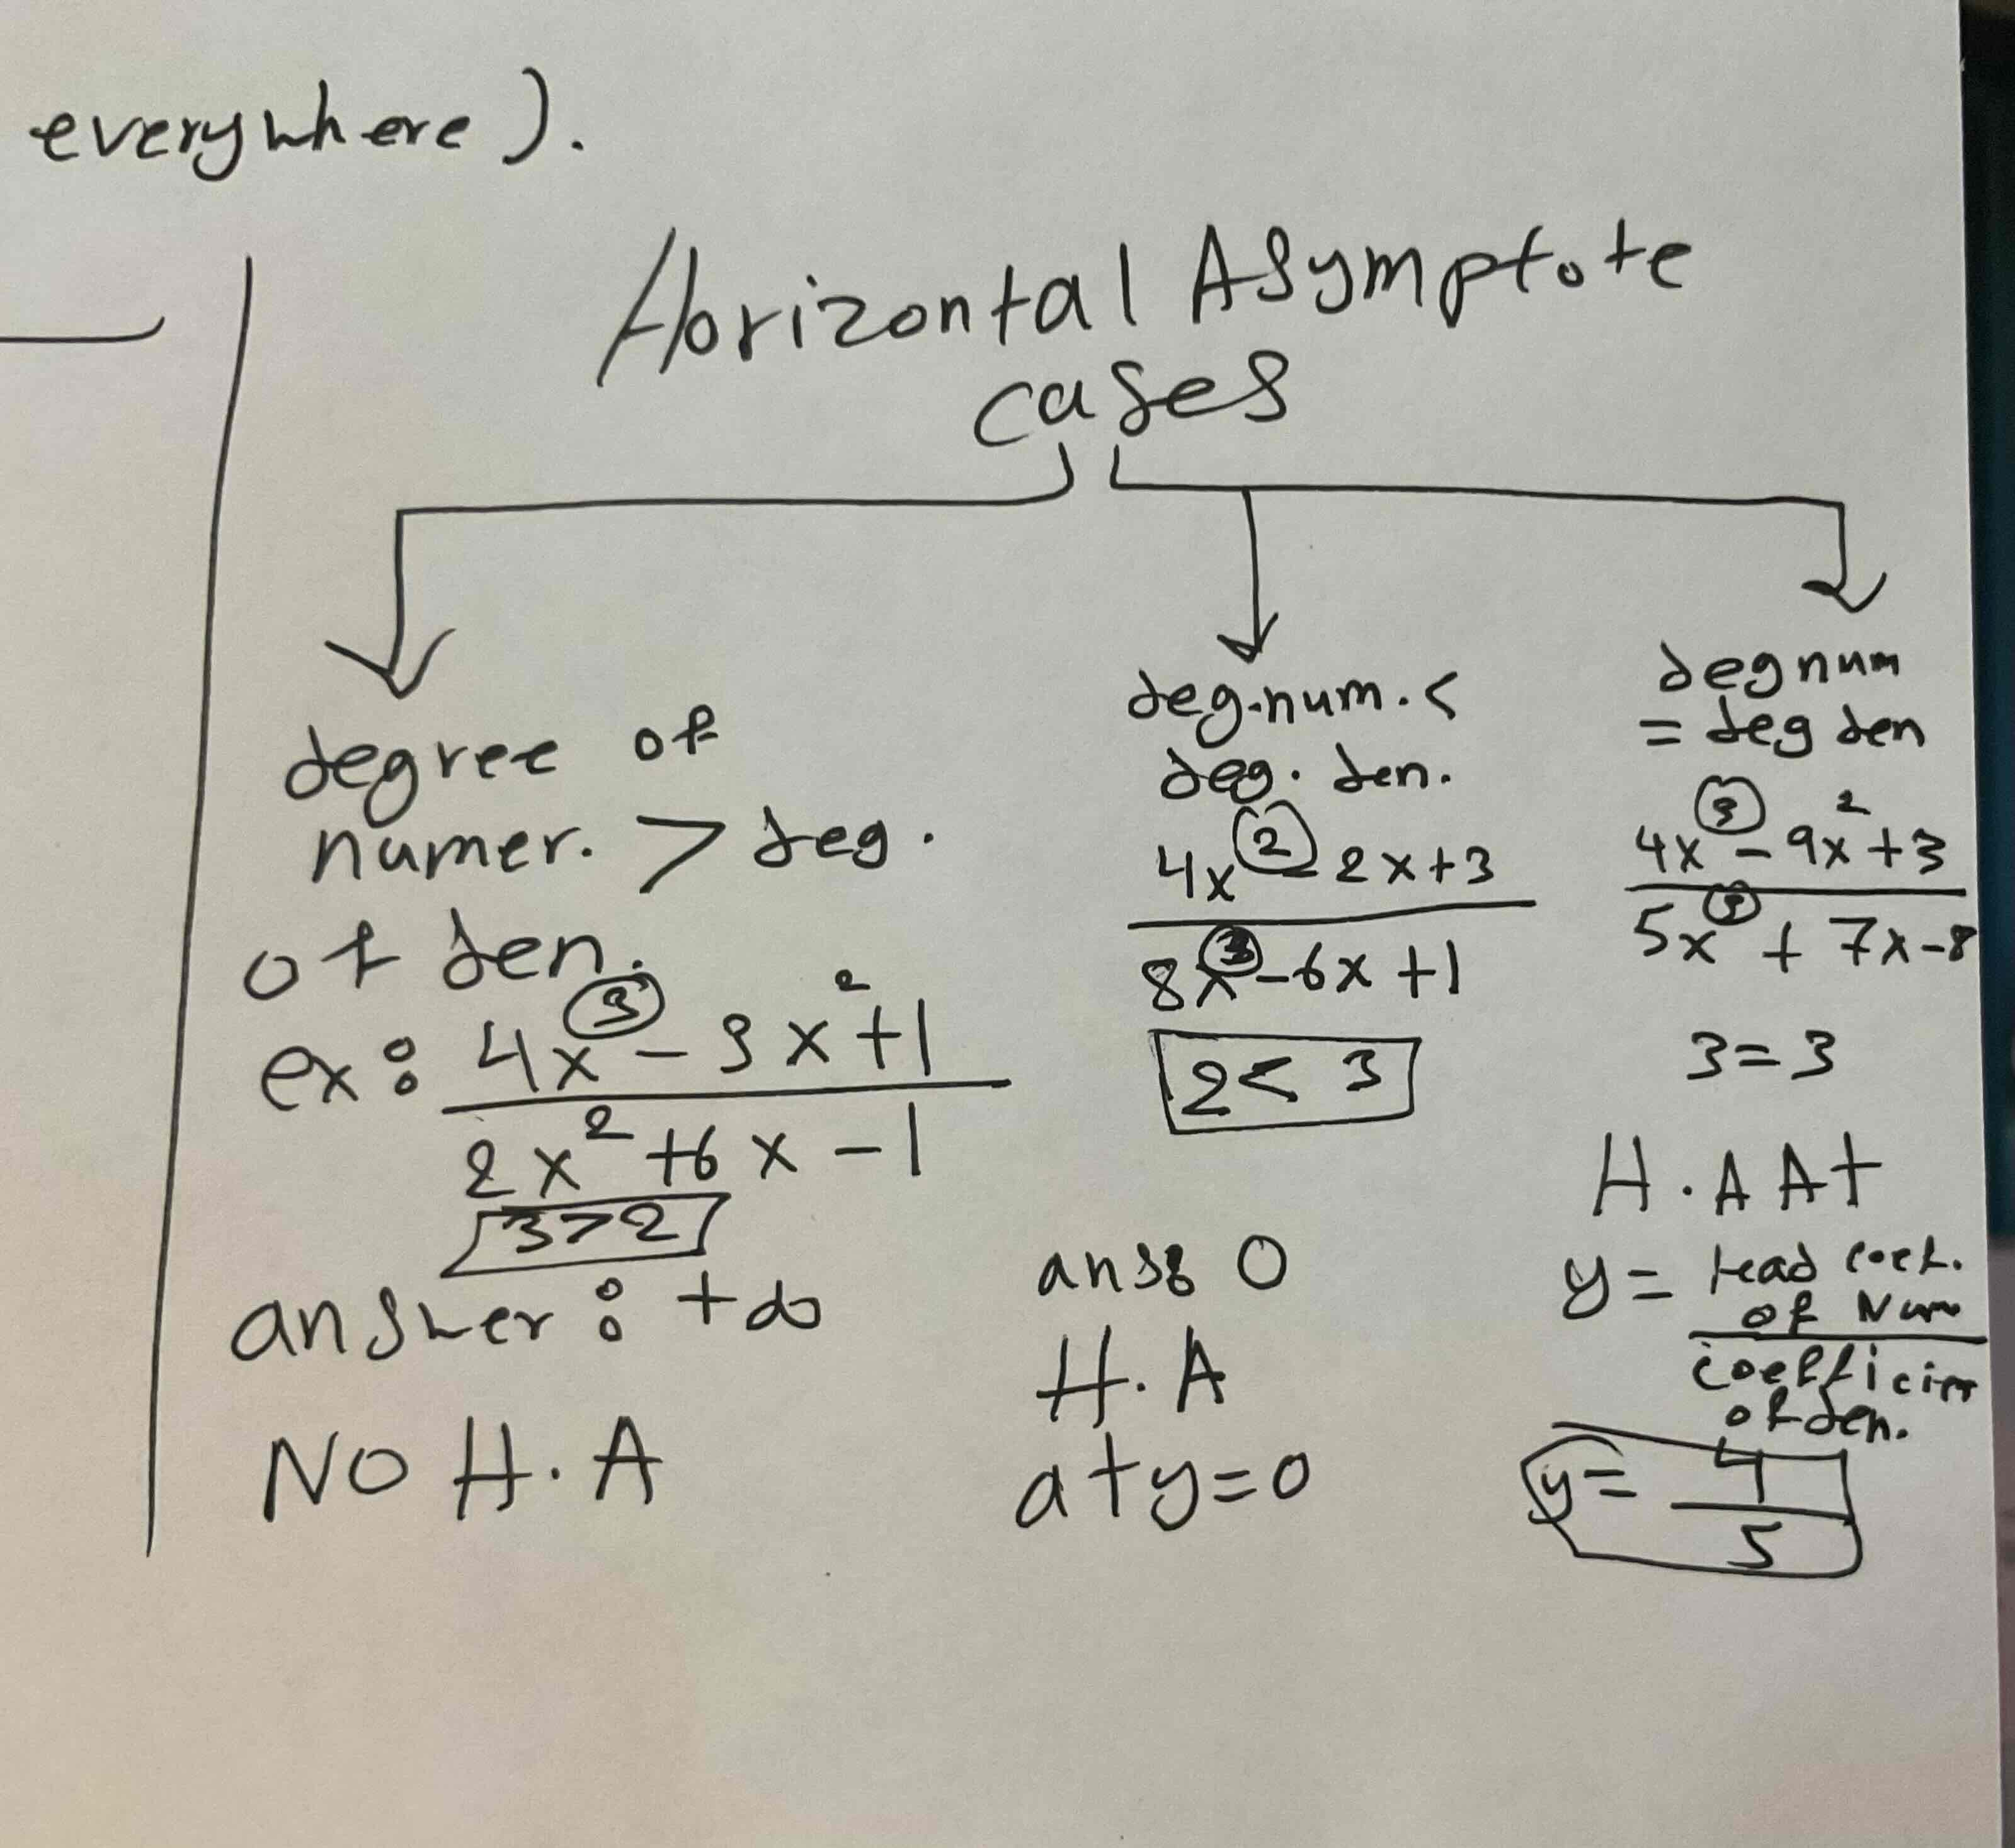 everywhere).
Horizontal Asymptote
cases
degree of
numer. > deg.
of den.
ex: 4x³ - 3x² + 1
2x² + 6x - 1
3>2
answer: +∞
NO H.A
deg.num. <
deg. den.
4x² - 2x + 3
8x³ - 6x + 1
2 < 3
ans: 0
H.A
at y=0
deg num
= deg den
4x³ - 9x² + 3
5x³ + 7x - 8
3=3
H.A At
y = lead coef.
of Num
coefficient
of den.
y = 4
5